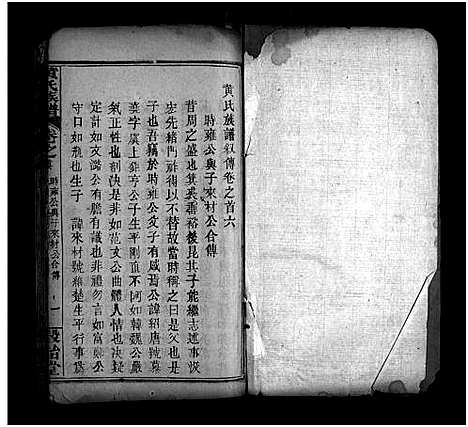 黃氏族譜叙傳卷之首六
時雍公與子來材公合傳
昔周之盛也箕裘垂裕後昆其子能繼志述事恢
宏先緒門祚得以不替故當時稱之曰是父也是
子也吾竊於時雍公父子有感焉公諱紹唐號慕
棻字虞上鉀亭公子生平剛直不阿如韓魏公嚴
氣正性也剖決是非如范文公曲體人情也決疑
定計如文潞公有膽有識也非禮勿言如富鄭公
守口如瓶也生子 諱來材號維楚生平行事爲
黃氏族譜
卷之
時雍公與子來材公合傳
一